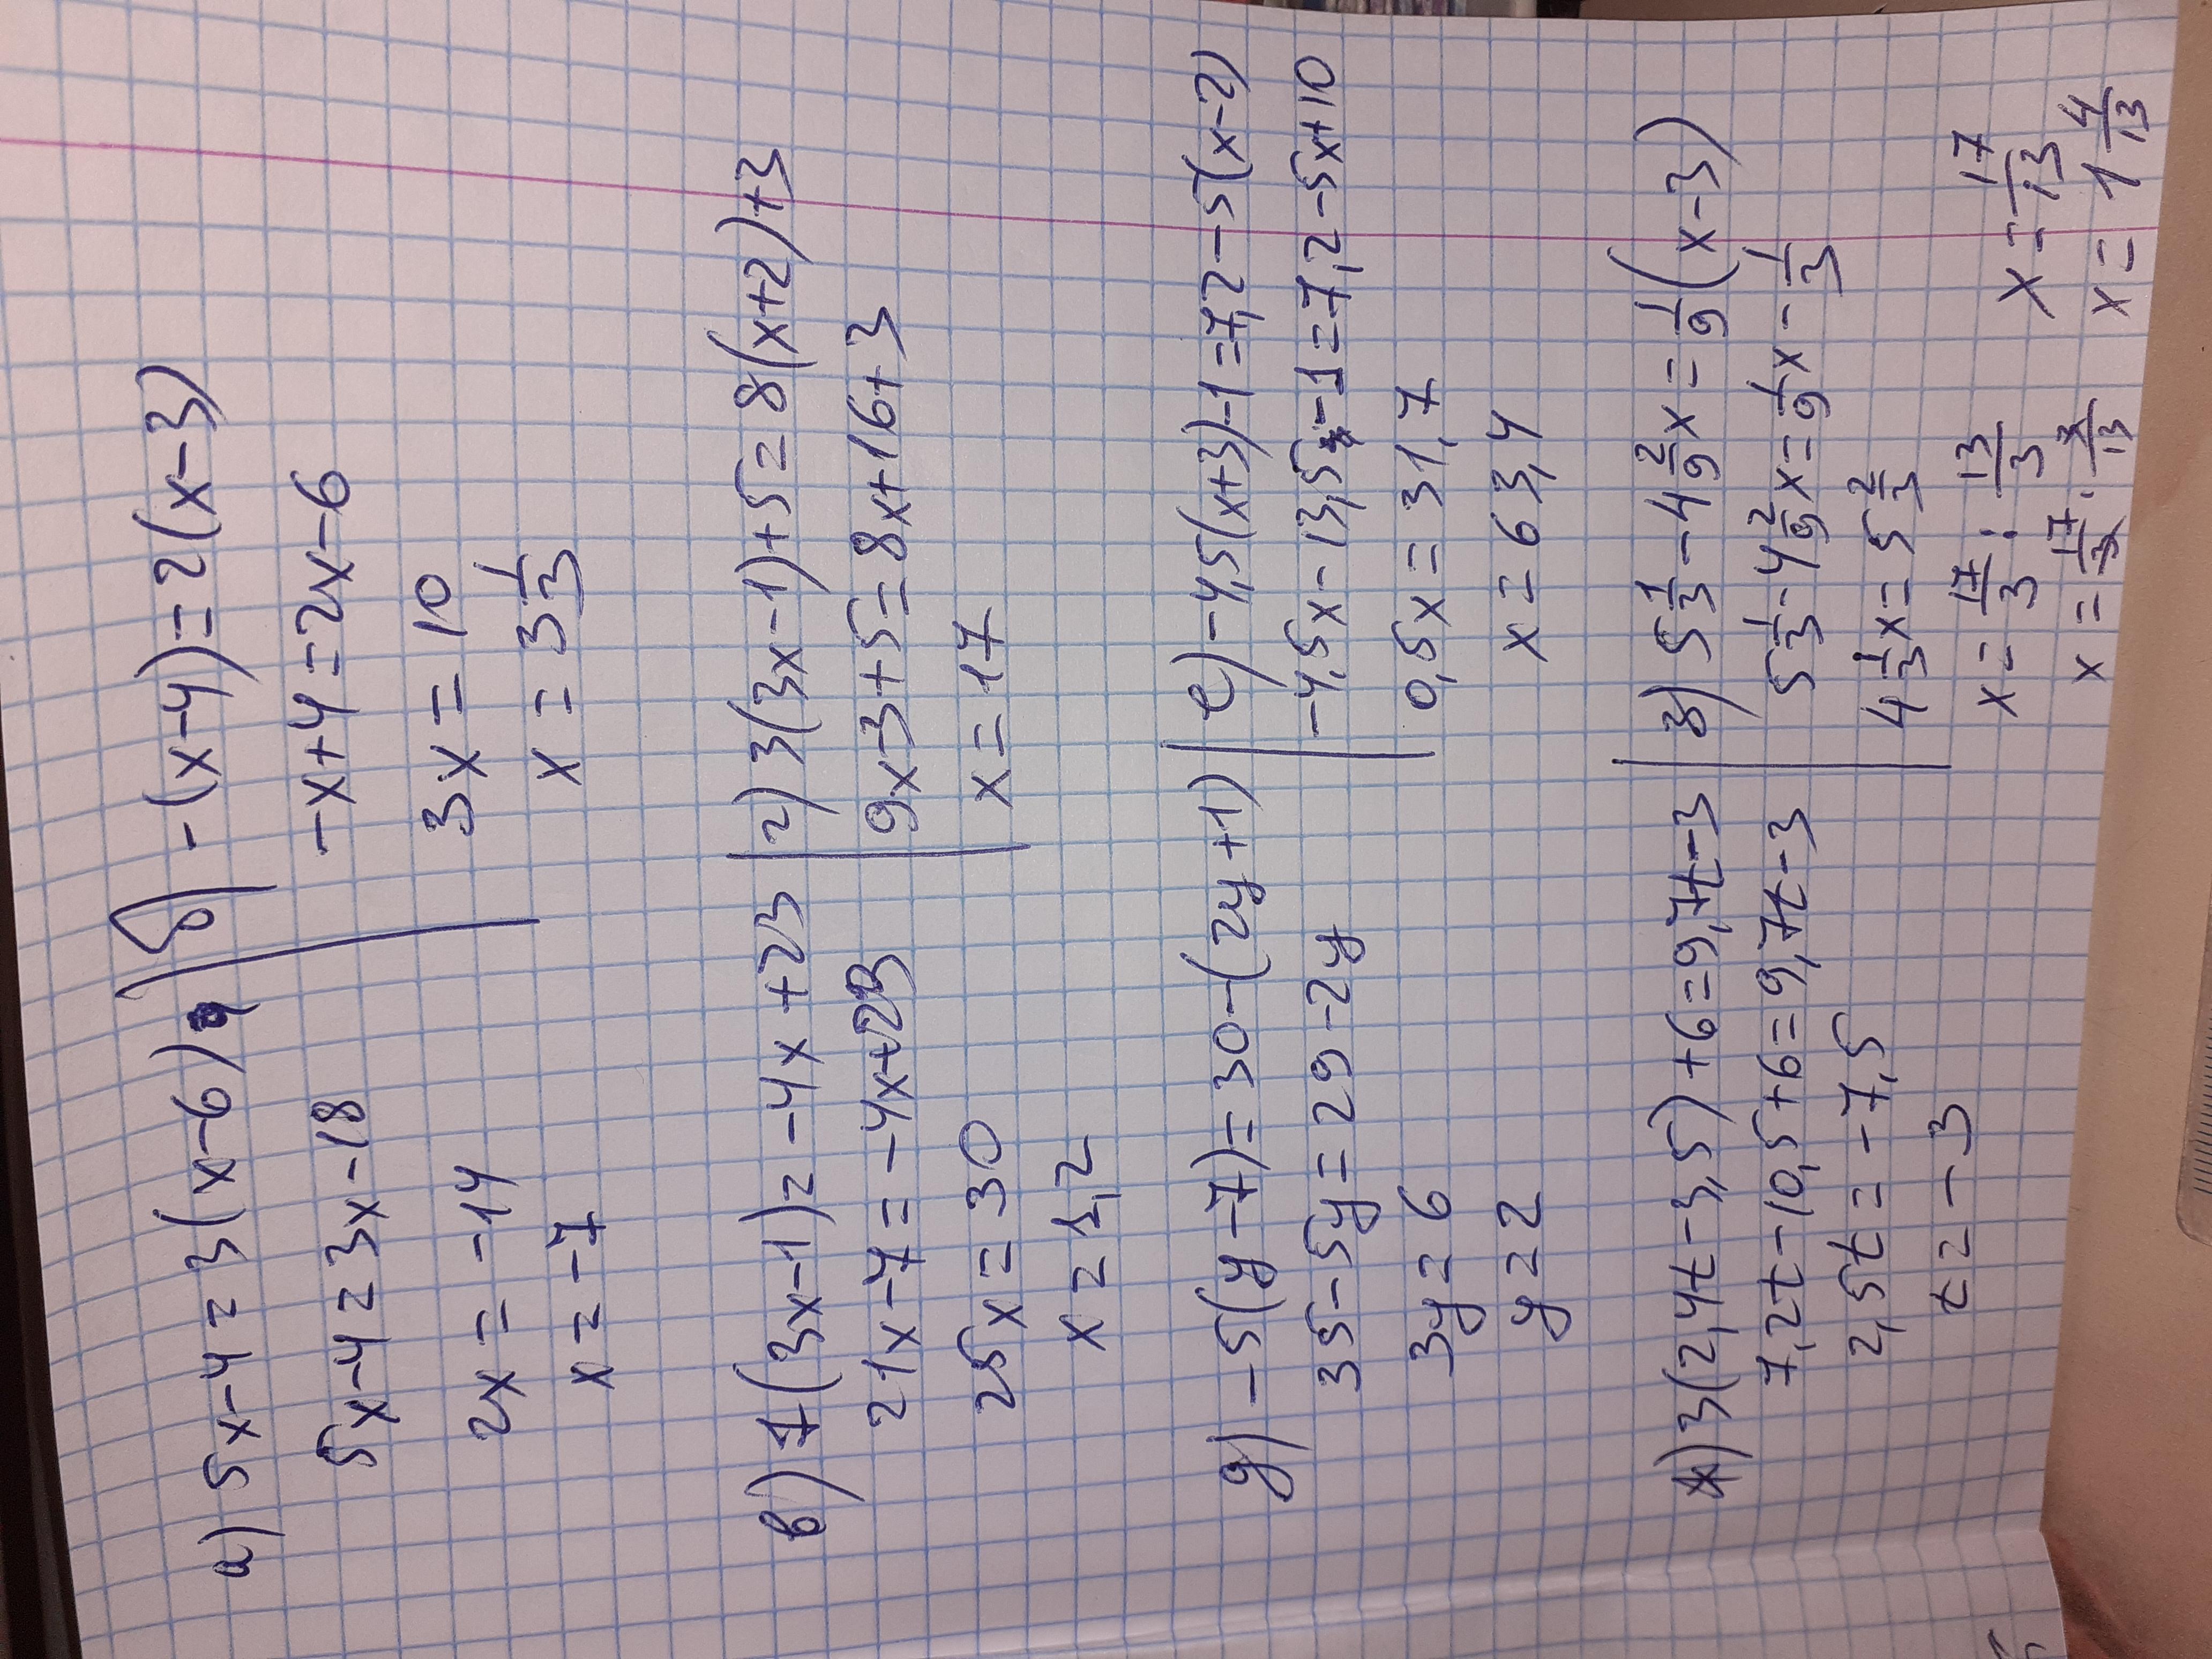 а) 5x-4=3(x-6)
5x-4=3x-18
2x=-14
x=-7
б) -(x-4)=2(x-3)
-x+4=2x-6
3x=10
x=3 1/3
в) 7(3x-1)=-4x+23
21x-7=-4x+23
25x=30
x=1,2
г) 3(3x-1)+5=8(x+2)+3
9x-3+5=8x+16+3
x=17
д) -5(y-7)=30-(2y+1)
35-5y=29-2y
3y=6
y=2
е) -4,5(x+3)-1=7,2-5(x-2)
-4,5x-13,5-1=7,2-5x+10
0,5x=31,7
x=63,4
ж) 3(2,4t-3,5)+6=9,7t-3
7,2t-10,5+6=9,7t-3
2,5t=-7,5
t=-3
з) 5 1/3-4 2/9x=1/9(x-3)
5 1/3-4 2/9x=1/9x-1/3
4 1/3x=5 2/3
x=17/3:13/3
x=17/3·3/13
x=17/13
x=1 4/13